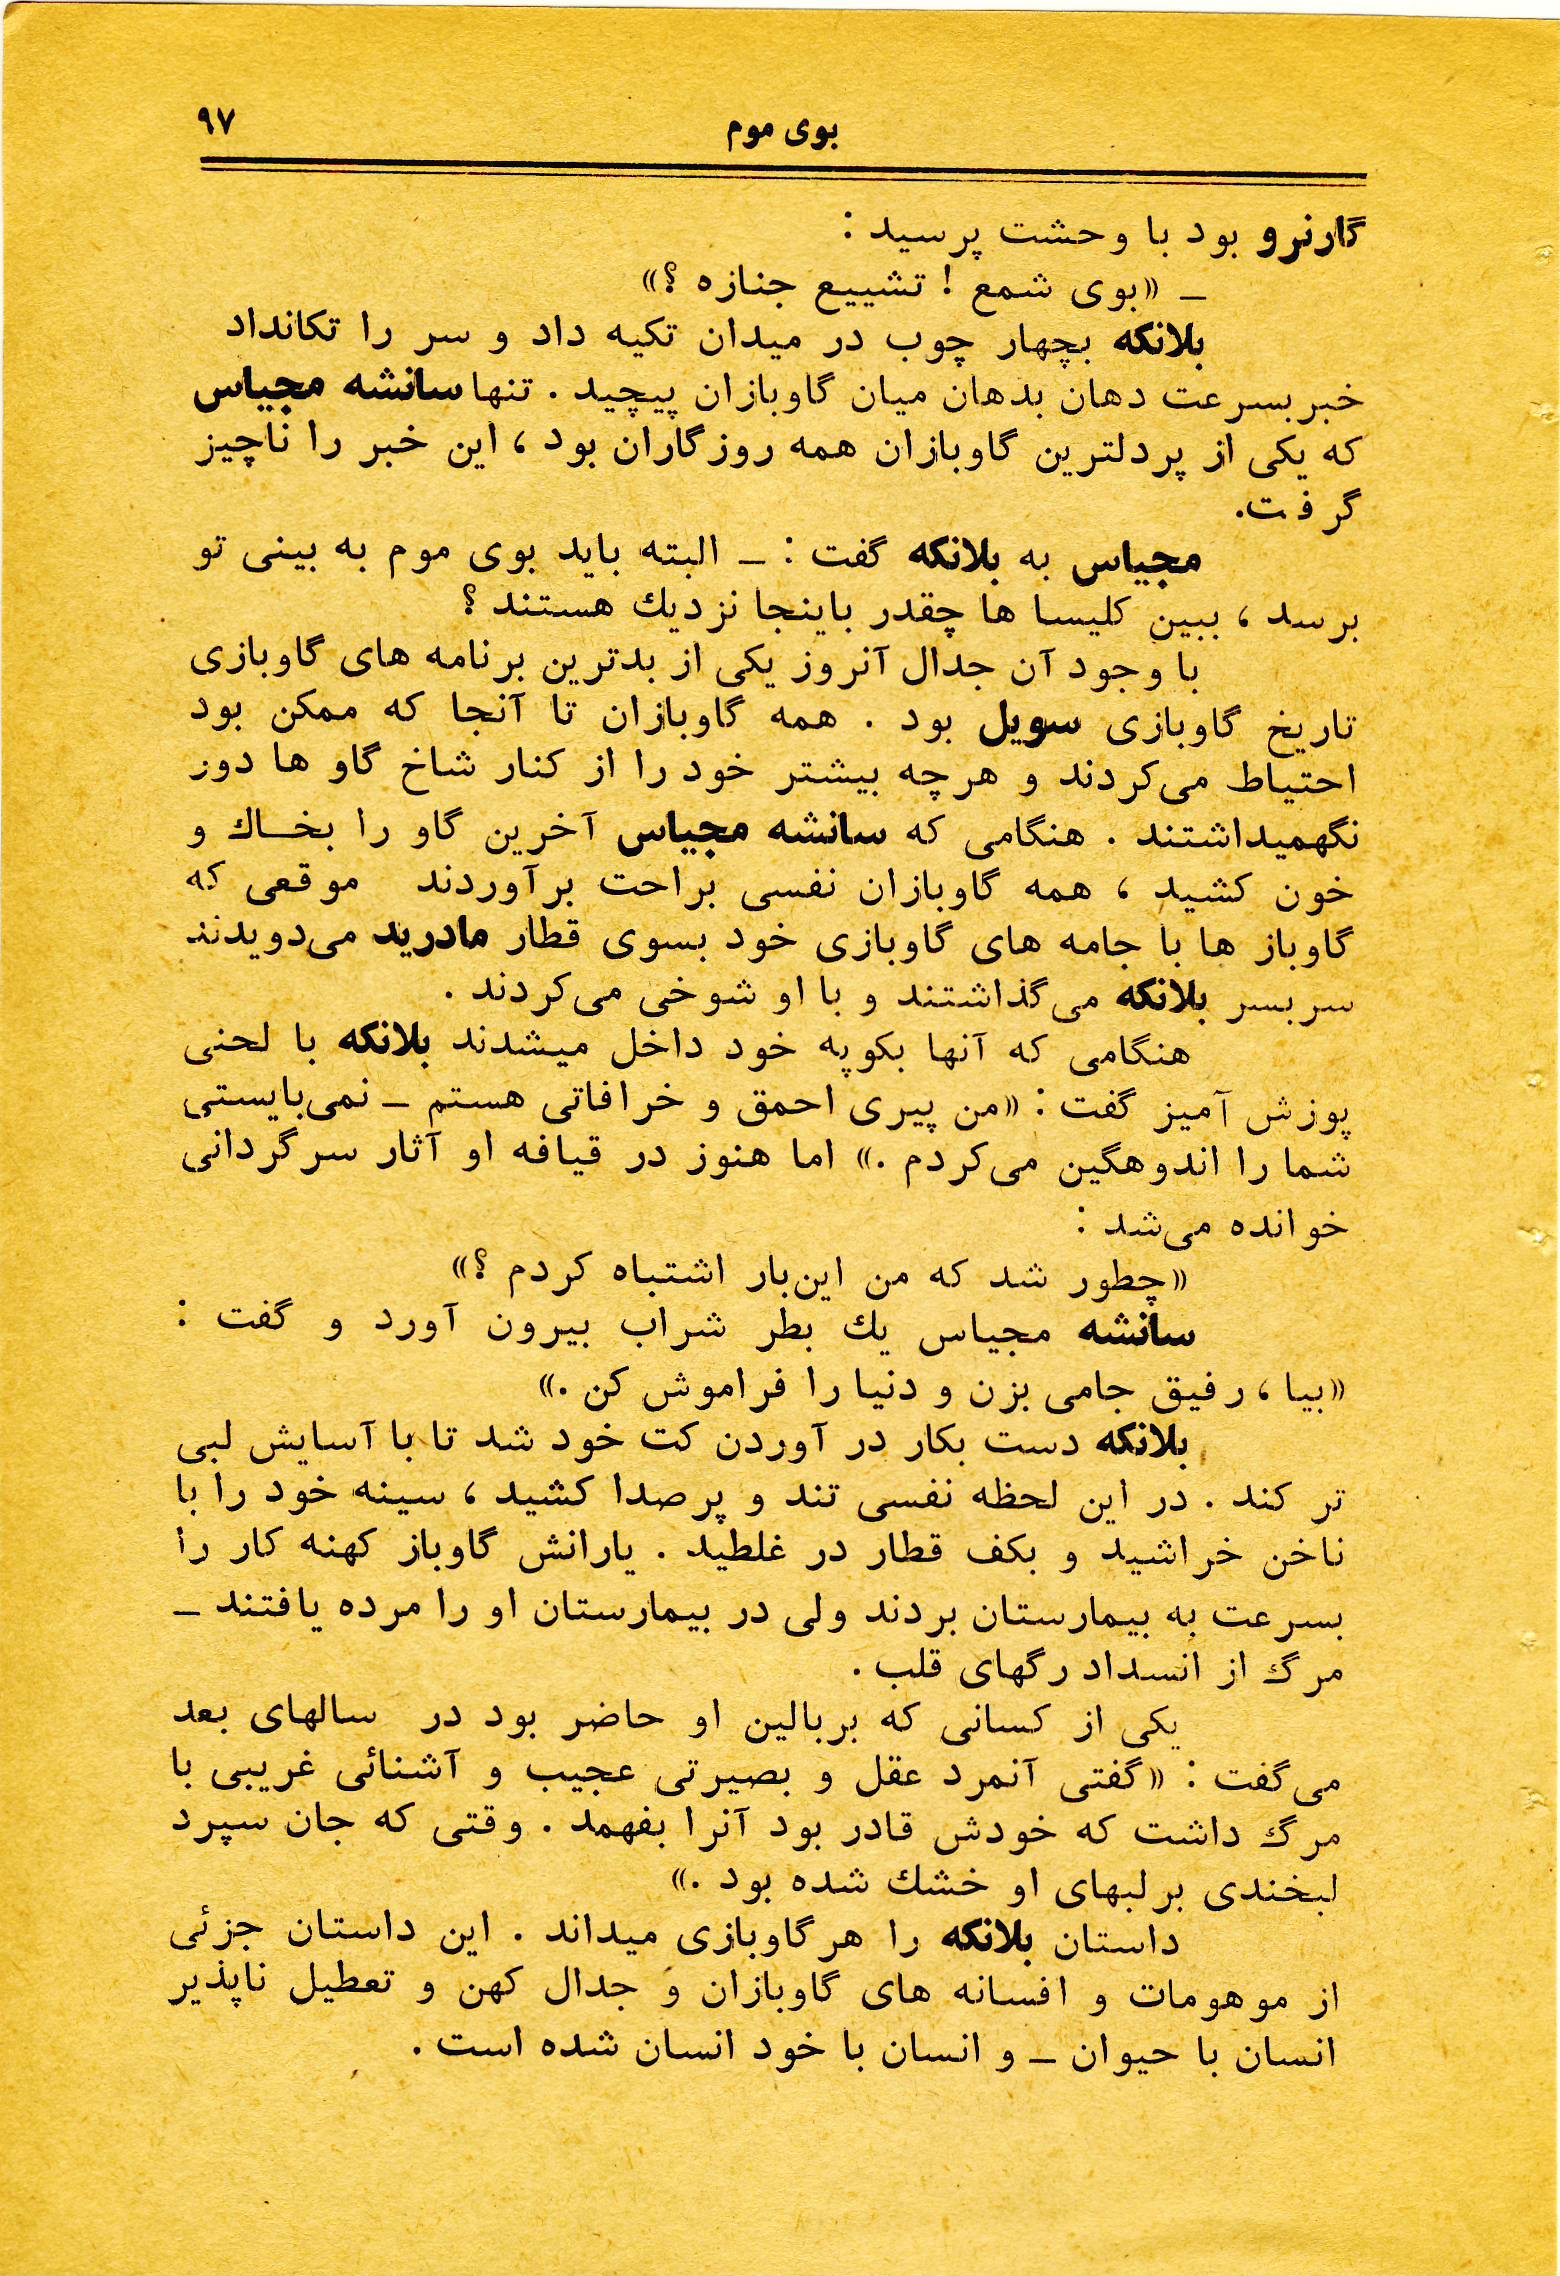 بوی موم
۹۷
گارنرو بود با وحشت پرسید :
ـ «بوی شمع ! تشییع جنازه ؟»
بلانکه بچهار چوب در میدان تکیه داد و سر را تکانداد
خبر بسرعت دهان بدهان میان گاوبازان پیچید . تنها سانشه مجیاس
که یکی از پردلترین گاوبازان همه روزگاران بود ، این خبر را ناچیز
گرفت.
مجیاس به بلانکه گفت : ـ البته باید بوی موم به بینی تو
برسد ، ببین کلیسا ها چقدر باینجا نزدیك هستند ؟
با وجود آن جدال آنروز یکی از بدترین برنامه های گاوبازی
تاریخ گاوبازی سویل بود . همه گاوبازان تا آنجا که ممکن بود
احتیاط می‌کردند و هرچه بیشتر خود را از کنار شاخ گاو ها دور
نگهمیداشتند . هنگامی که سانشه مجیاس آخرین گاو را بخـاك و
خون کشید ، همه گاوبازان نفسی براحت برآوردند موقعی که
گاوباز ها با جامه های گاوبازی خود بسوی قطار مادرید می‌دویدند
سربسر بلانکه می‌گذاشتند و با او شوخی می‌کردند .
هنگامی که آنها بکوپه خود داخل میشدند بلانکه با لحنی
پوزش آمیز گفت : «من پیری احمق و خرافاتی هستم ـ نمی‌بایستی
شما را اندوهگین می‌کردم .» اما هنوز در قیافه او آثار سرگردانی
خوانده می‌شد :
«چطور شد که من این‌بار اشتباه کردم ؟»
سانشه مجیاس یك بطر شراب بیرون آورد و گفت :
«بیا ، رفیق جامی بزن و دنیا را فراموش کن .»
بلانکه دست بکار در آوردن کت خود شد تا با آسایش لبی
تر کند . در این لحظه نفسی تند و پرصدا کشید ، سینه خود را با
ناخن خراشید و بکف قطار در غلطید . یارانش گاوباز کهنه کار را
بسرعت به بیمارستان بردند ولی در بیمارستان او را مرده یافتند ـ
مرگ از انسداد رگهای قلب .
یکی از کسانی که بربالین او حاضر بود در سالهای بعد
می‌گفت : «گفتی آنمرد عقل و بصیرتی عجیب و آشنائی غریبی با
مرگ داشت که خودش قادر بود آنرا بفهمد . وقتی که جان سپرد
لبخندی برلبهای او خشك شده بود .»
داستان بلانکه را هرگاوبازی میداند . این داستان جزئی
از موهومات و افسانه های گاوبازان و جدال کهن و تعطیل ناپذیر
انسان با حیوان ـ و انسان با خود انسان شده است .